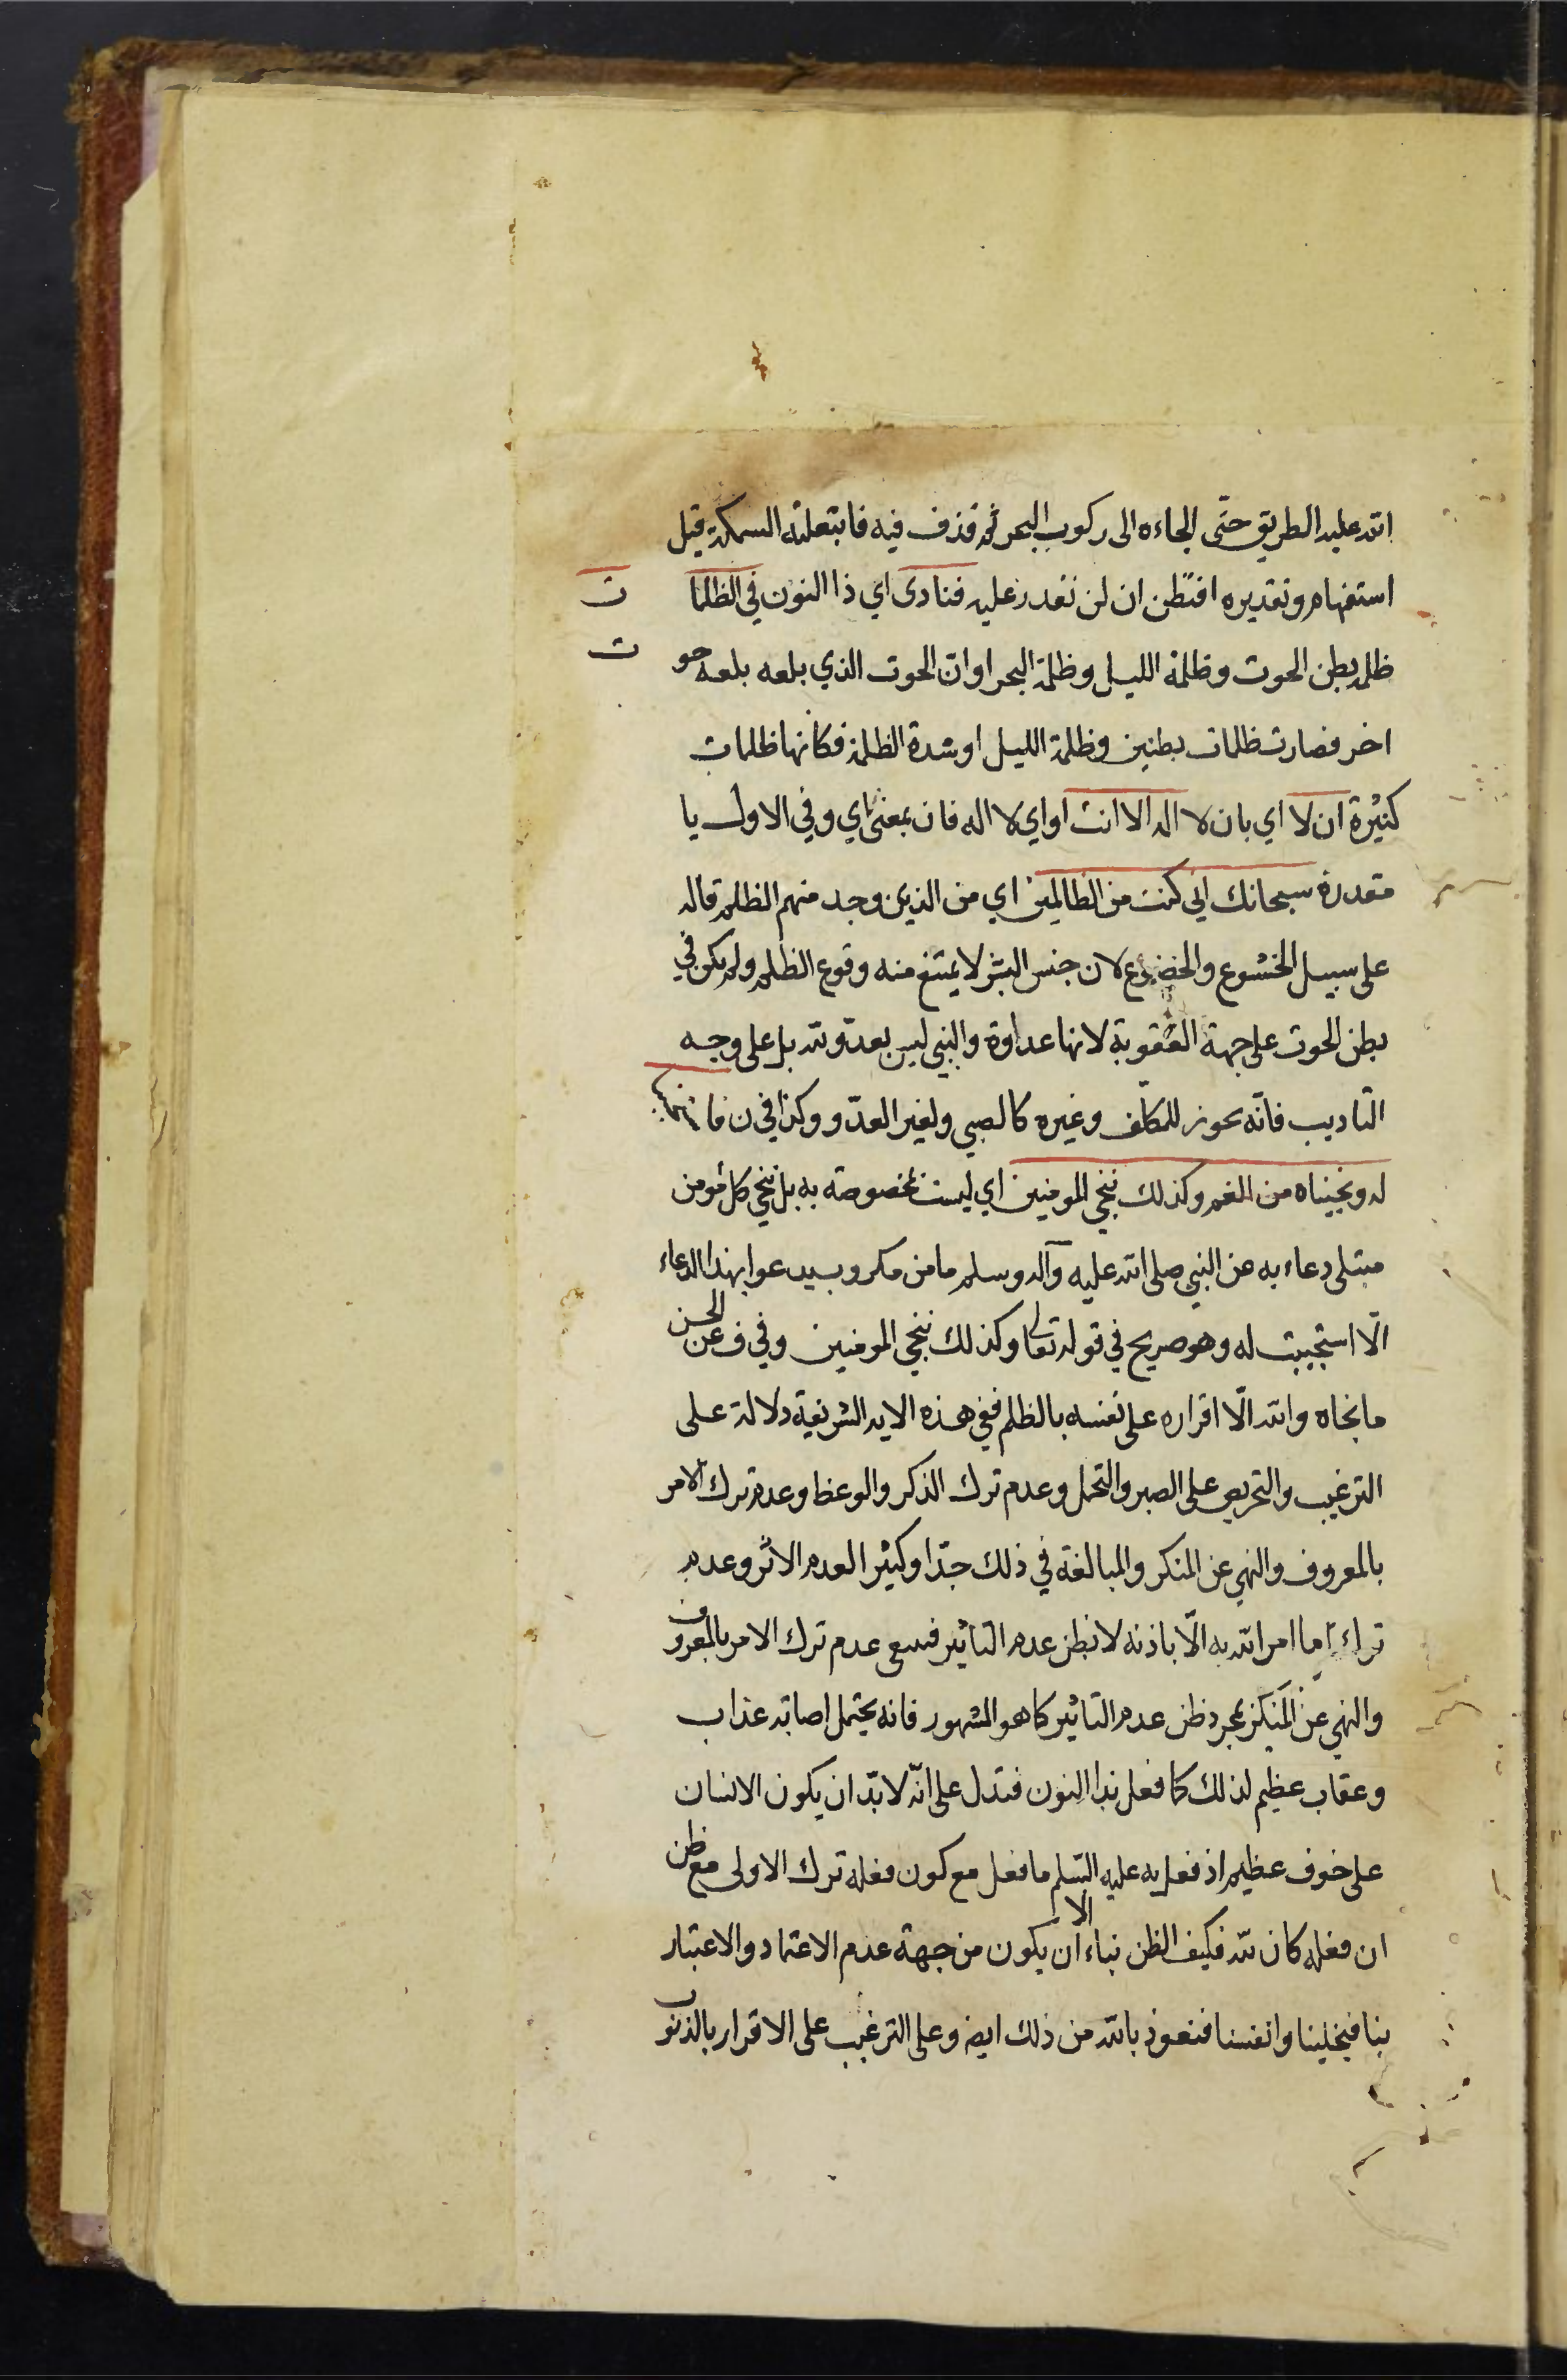 الله عليه الطريق حتى الجاءه الى ركوب البحر ثم قذف فيه فابتعلته السمكة قيل
استفهام وتقديره افتظن ان لن نقدر عليه فنادى اي ذا النون في الظلمات
ظلمة بطن الحوت وظلمة الليل وظلمة البحر او ان الحوت الذي بلعه بلعه حوت
اخر فصارت ظلمات بطنين وظلمة الليل او شدة الظلمة فكانها ظلمات
كثيرة ان لا اي بان لا اله الا انت او اي لا اله فان بمعنى اي وفي الاول با
مقدرة سبحانك اني كنت من الظالمين اي من الذين وجد منهم الظلم قاله
على سبيل الخشوع والخضوع لان جنس البشر لا يمتنع منه وقوع الظلم ولم يكن في
بطن الحوت على جهة العقوبة لانها عداوة والنبي ليس بعدو لله بل على وجه
التاديب فانّه يجوز للمكلّف وغيره كالصبي ولغير العدّو وكذا في ن فاستجبنا
له ونجيناه من الغم وكذلك ننجي المومنين اي ليست مخصوصة به بل ننجي كل مومن
مبتلى دعاء به عن النبي صلى الله عليه وآله وسلم ما من مكروب يدعوا بهذا الدعاء
الّا استجيبت له وهو صريح في قوله تعالى وكذلك ننجي المومنين وفي ف عن الحسن
ما نجاه والله الّا اقراره على نفسه بالظلم ففي هذه الايه الشريفة دلالة على
الترغيب والتحريص على الصبر والتحمل وعدم ترك الذكر والوعظ وعدم ترك الامر
بالمعروف والنهي عن المنكر والمبالغة في ذلك جدّا وكثيرا لعدم الاثر وعدم
ترك ما امر الله به الّا باذنه لا نظن عدم التاثير فسعى عدم ترك الامر بالمعروف
والنهي عن المنكر بمجرد ظن عدم التاثير كما هو المشهور فانه يحتمل اصابة عذاب
وعقاب عظيم لذلك كما فعل بذا النون فتدل على انّه لا بدّ ان يكون الانسان
على خوف عظيم اذ فعل به عليه السلم ما فعل مع كون فعله ترك الاولى مع ظن
ان فعله كان لله فكيف الظن بناء الا ان يكون من جهة عدم الاعتماد والاعتبار
بنا فيخلينا وانفسنا فنعوذ بالله من ذلك ايض وعلى الترغيب على الاقرار بالذنوب